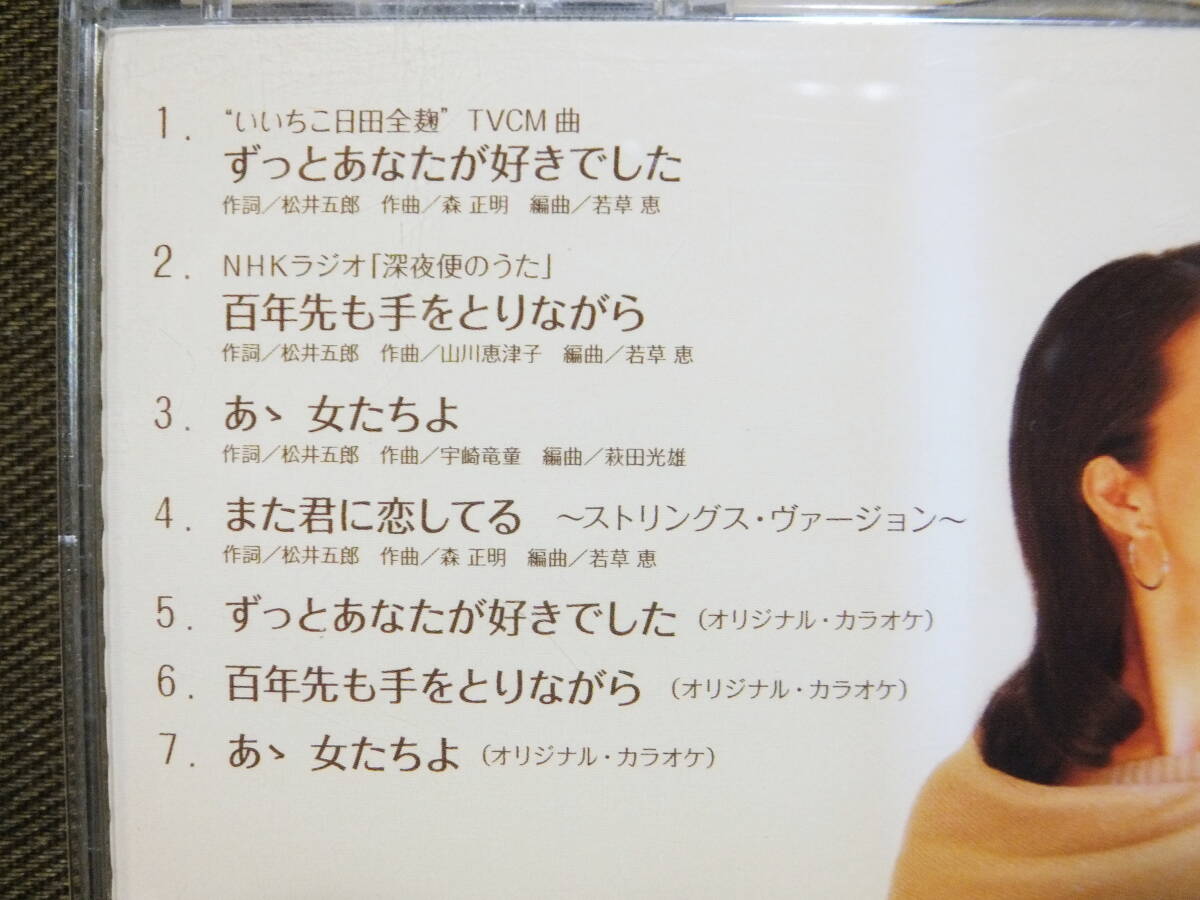 1. “いいちこ日田全麹” TVCM 曲
ずっとあなたが好きでした
作詞／松井五郎 作曲／森 正明 編曲／若草 恵
2. NHKラジオ「深夜便のうた」
百年先も手をとりながら
作詞／松井五郎 作曲／山川恵津子 編曲／若草 恵
3. あゝ 女たちよ
作詞／松井五郎 作曲／宇崎竜童 編曲／萩田光雄
4. また君に恋してる ～ストリングス・ヴァージョン～
作詞／松井五郎 作曲／森 正明 編曲／若草 恵
5. ずっとあなたが好きでした (オリジナル・カラオケ)
6. 百年先も手をとりながら (オリジナル・カラオケ)
7. あゝ 女たちよ (オリジナル・カラオケ)